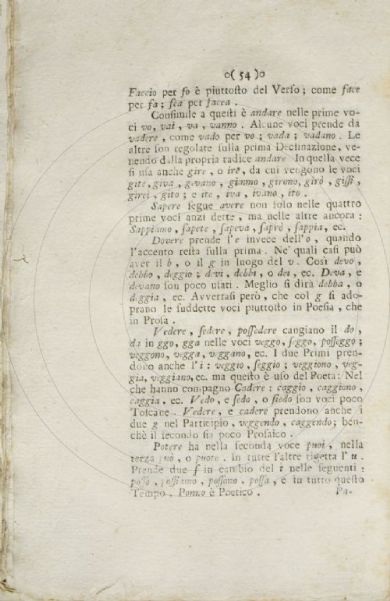 o( 54 )o
Faccio per fo è piuttosto del Verso; come face
per fa; fea per facea.
Consimile a questi è andare nelle prime vo-
ci vo, vai, va, vanno. Alcune voci prende da
vadere, come vado per vo; vada; vadano. Le
altre son regolate sulla prima Declinazione, ve-
nendo dalla propria radice andare. In quella vece
si usa anche gire, o ire, da cui vengono le voci
gite, giva, givano, gimmo, girono, girò, gissi,
girei, gito; e ite, iva, ivano, ito.
Sapere segue avere non solo nelle quattro
prime voci anzi dette, ma nelle altre ancora:
Sappiamo, sapete, sapeva, saprò, sappia, ec.
Dovere prende l'e invece dell'o, quando
l'accento resta sulla prima. Ne' quali casi può
aver il b, o il g in luogo del v. Così devo,
debbo, deggio; devi, debbi, o dei, ec. Deva, e
devano son poco usati. Meglio si dirà debba, o
deggia, ec. Avvertasi però, che col g si ado-
prano le suddette voci piuttosto in Poesia, che
in Prosa.
Vedere, sedere, possedere cangiano il do,
da in ggo, gga nelle voci veggo, seggo, posseggo;
veggono, vegga, veggano, ec. I due Primi pren-
dono anche l'i: veggio, seggio; veggiono, veg-
gia, veggiano, ec. ma questo è uso del Poeta: Nel
che hanno compagno Cadere: caggio, caggiono,
caggia, ec. Vedo, e sedo, o siedo son voci poco
Toscane. Vedere, e cadere prendono anche i
due g nel Participio, veggendo, caggendo; ben-
chè il secondo sia poco Prosaico.
Potere ha nella seconda voce puoi, nella
terza può, o puote. In tutte l'altre rigetta l'u.
Prende due s in cambio del t nelle seguenti:
posso, possiamo, possono, possa, e in tutto questo
Tempo. Ponno è Poetico.